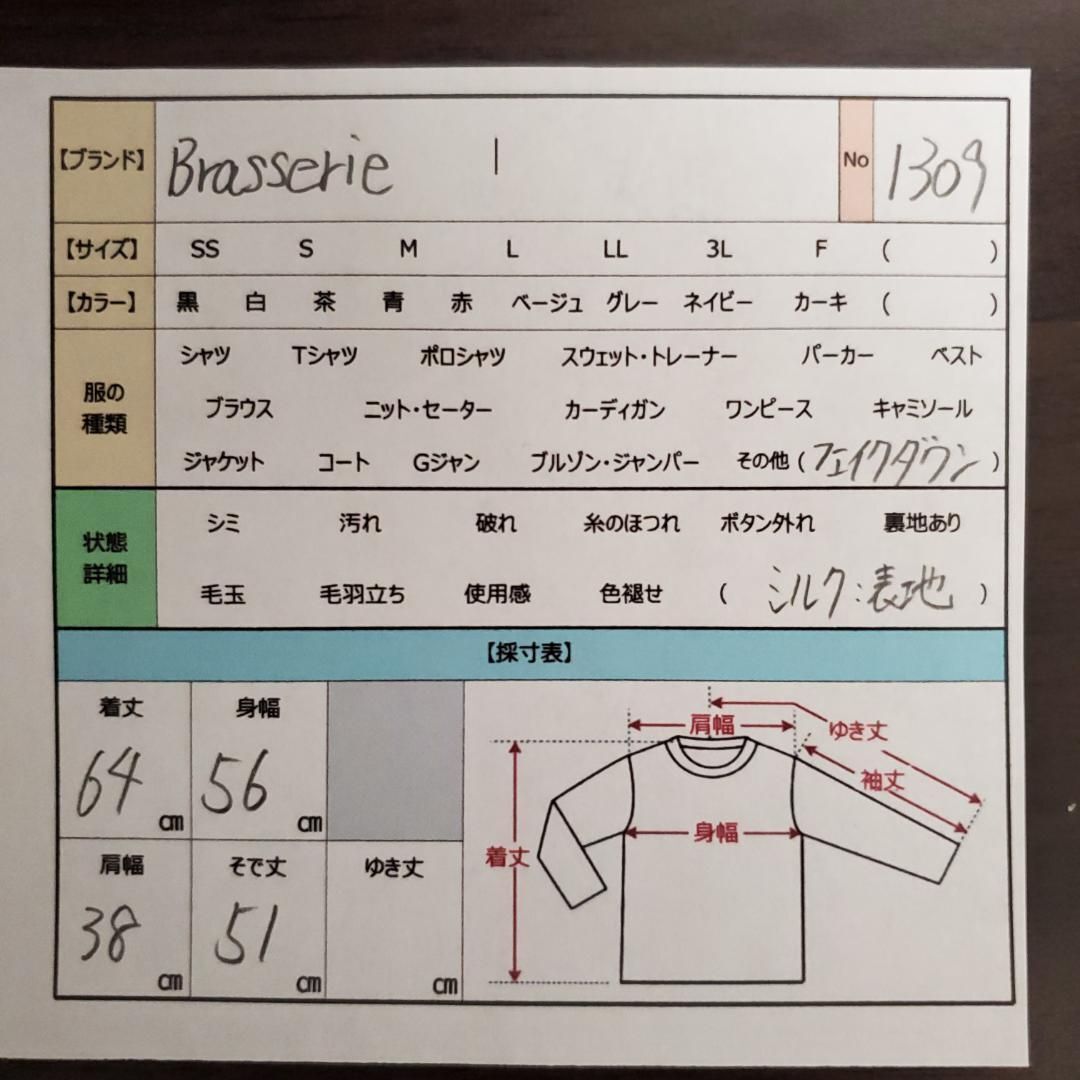 【ブランド】 Brasserie No 1309
【サイズ】 SS S M L LL 3L F ( )
【カラー】 黒 白 茶 青 赤 ベージュ グレー ネイビー カーキ ( )
服の種類
シャツ Tシャツ ポロシャツ スウェット・トレーナー パーカー ベスト
ブラウス ニット・セーター カーディガン ワンピース キャミソール
ジャケット コート Gジャン ブルゾン・ジャンパー その他 (フェイクダウン)
状態詳細
シミ 汚れ 破れ 糸のほつれ ボタン外れ 裏地あり
毛玉 毛羽立ち 使用感 色褪せ ( シルク:表地 )
【採寸表】
着丈 身幅
64 cm 56 cm
肩幅 そで丈 ゆき丈
38 cm 51 cm cm
肩幅 ゆき丈
袖丈
身幅
着丈